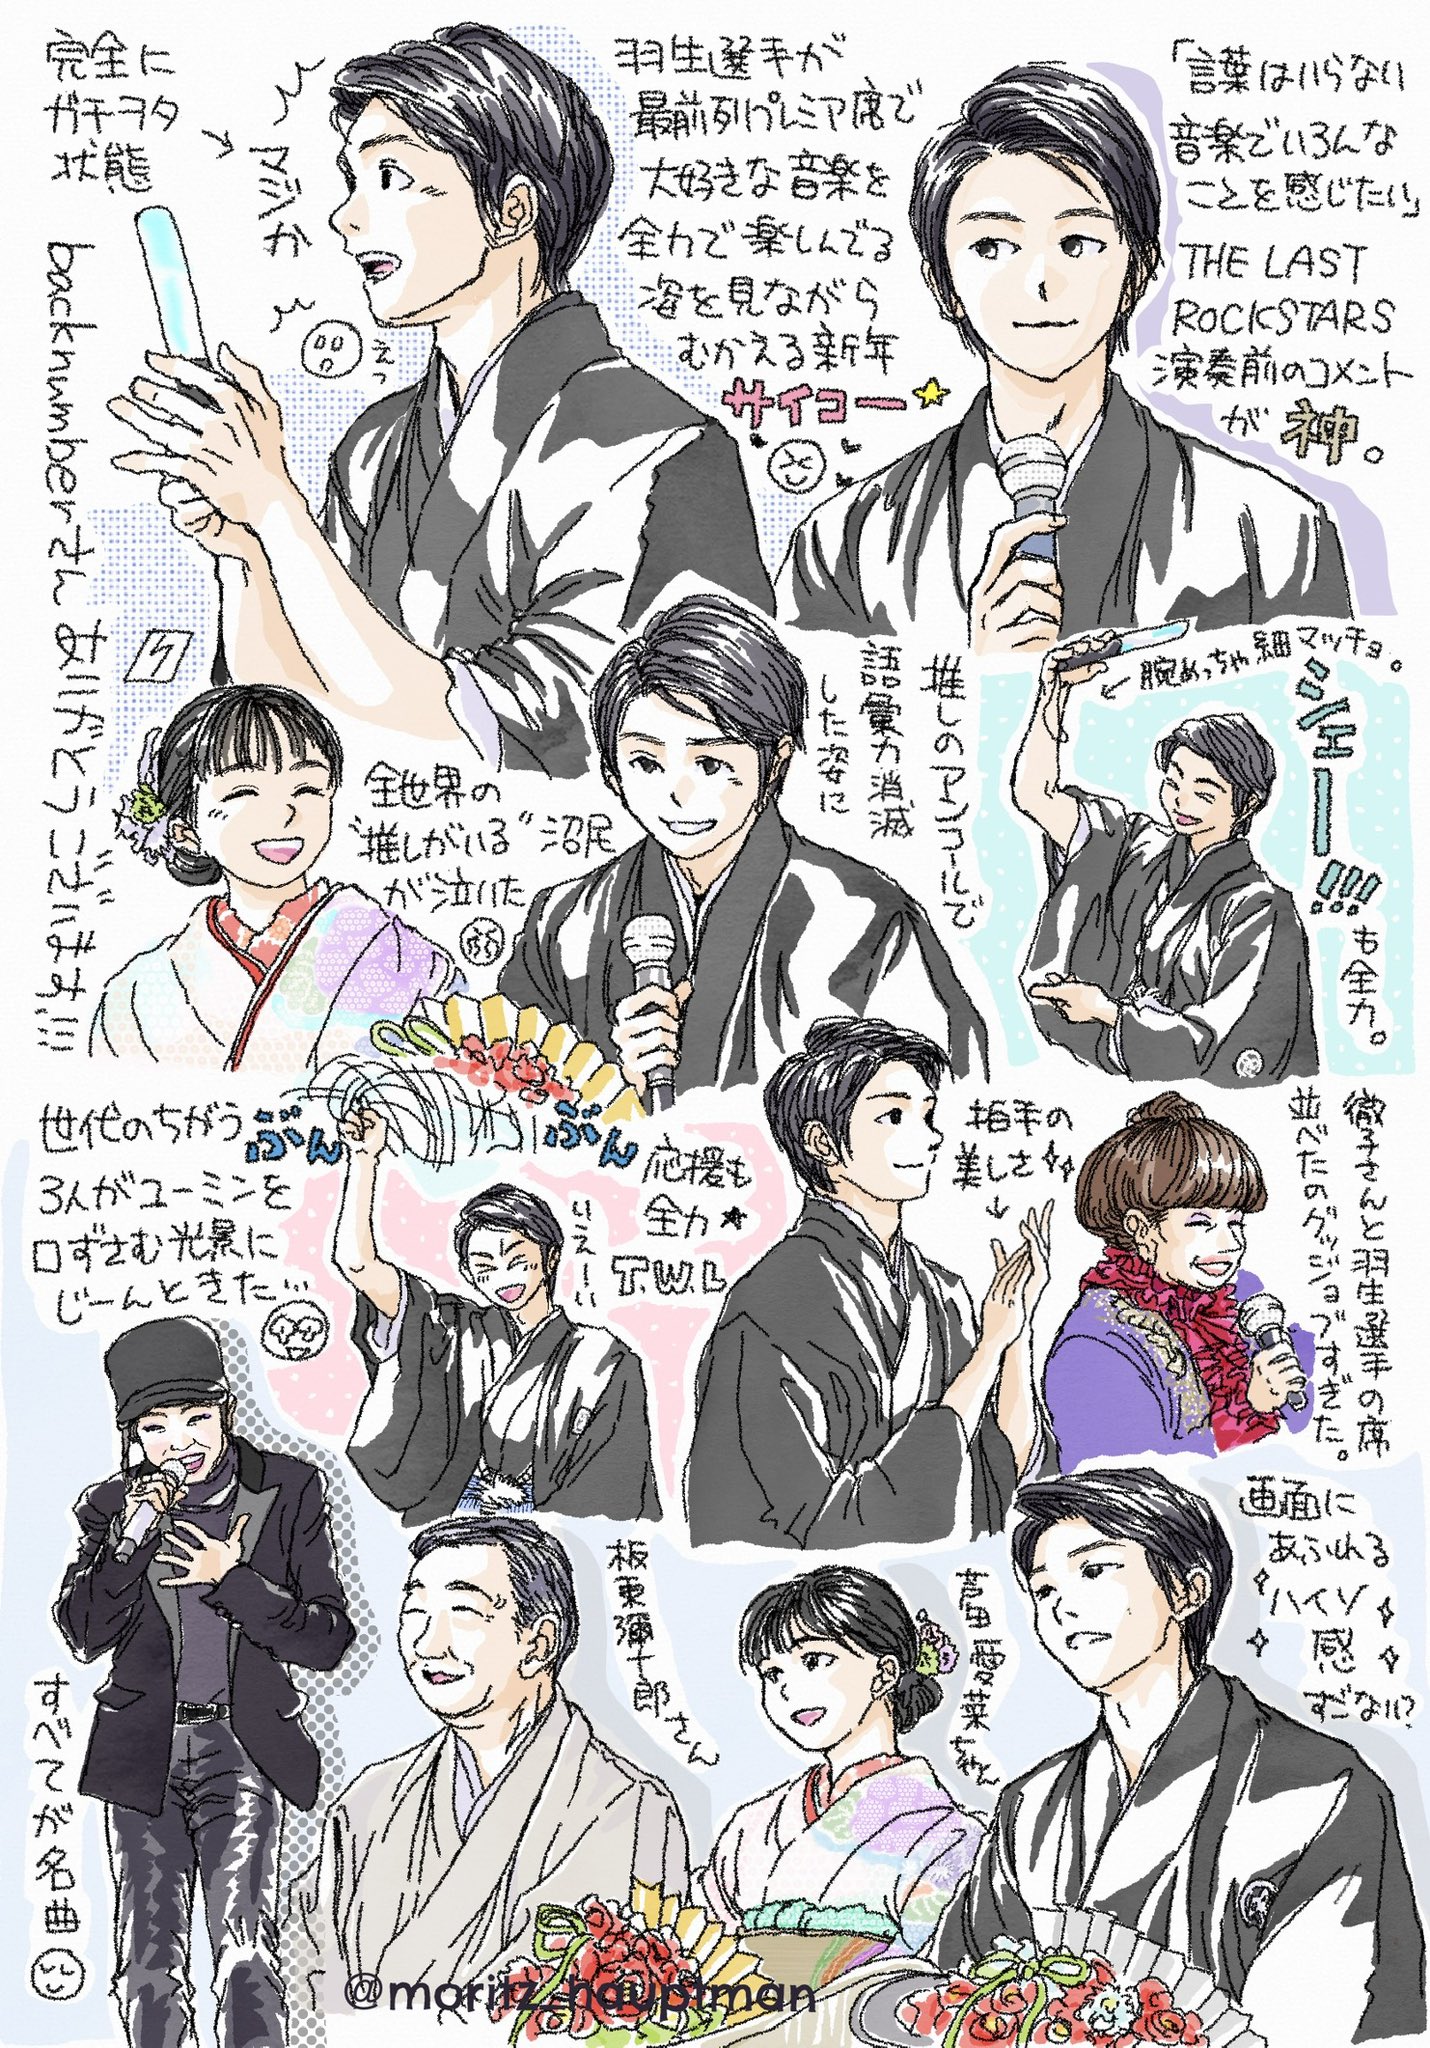 完全に
ガチヲタ
状態
マジか
えっ
羽生選手が
最前列プレミア席で
大好きな音楽を
全力で楽しんでる
姿を見ながら
むかえる新年
サイコー
「言葉はいらない
音楽でいろんな
ことを感じたい」
THE LAST
ROCKSTARS
演奏前のコメント
が神。
backnumberさんありがとうございます!!!
全世界の
"推しがいる"沼民
が泣いた
推しのアンコールで
語彙力消滅
した姿に
腕めっちゃ細マッチョ。
シェー!!!
も全力。
世代のちがう
3人がユーミンを
口ずさむ光景に
じーんときた…
ぶん
ぶん
いえーい
応援も
全力
T.W.L
拍手の
美しさ
徹子さんと羽生選手の席
並べたのグッジョブすぎた。
すべてが名曲
板東彌十郎さん
芦田愛菜ちゃん
画面に
あふれる
ハイソ
感
すごない?
@moritz_hauptman